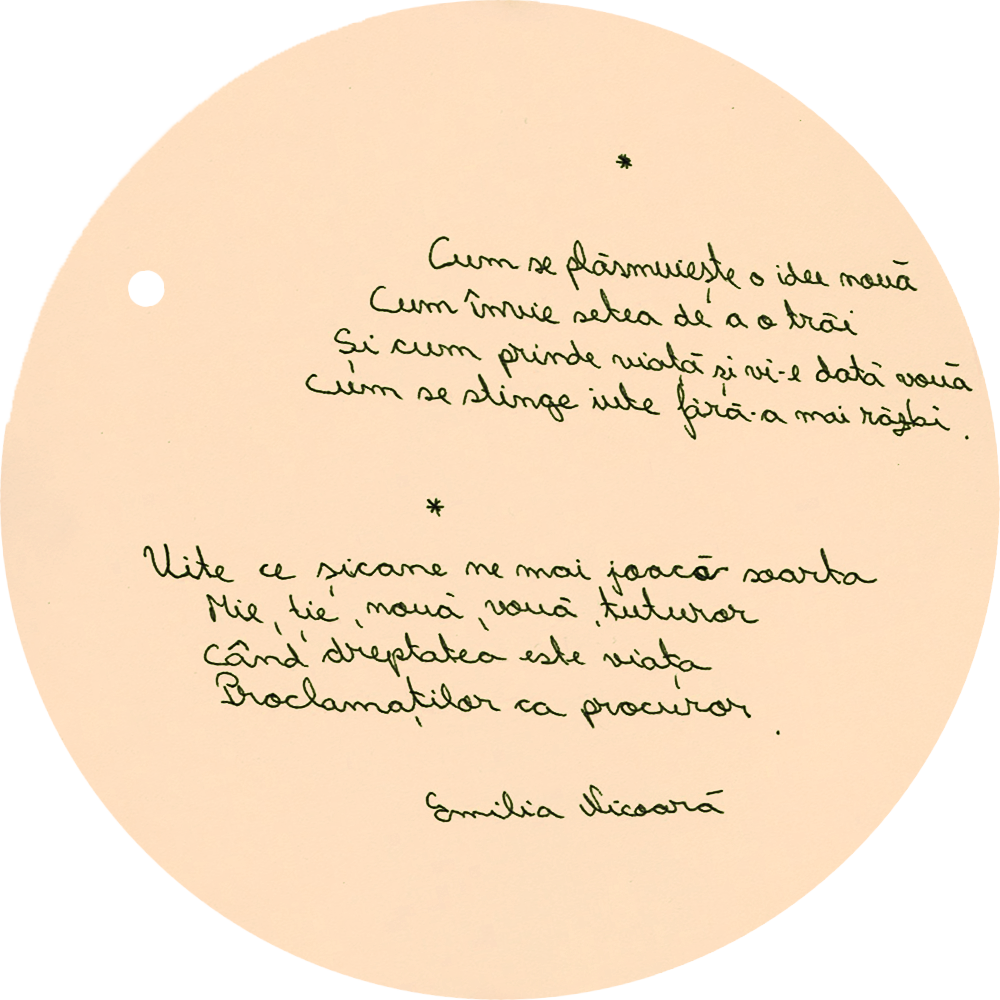 *
Cum se plăsmuiește o idee nouă
Cum învie setea de a o trăi
Și cum prinde viață și vi-e dată vouă
Cum se stinge iute fără-a mai răzbi.
*
Uite ce șicane ne mai joacă soarta
Mie, ție, nouă, vouă, tuturor
Când dreptatea este viața
Proclamaților ca procuror.
Emilia Nicoară